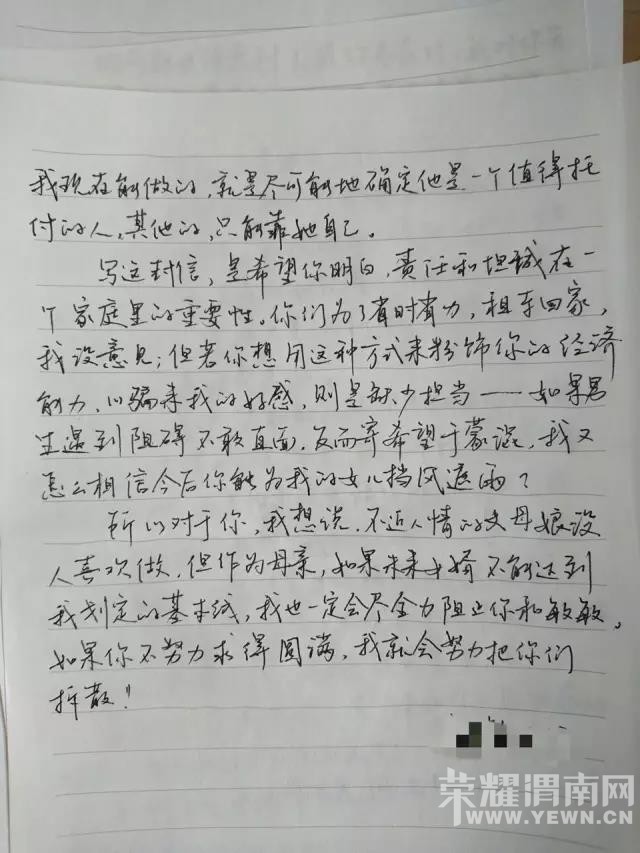 我现在能做的，就是尽可能地确定他是一个值得托
付的人，其他的，只能靠她自己。
写这封信，是希望你明白，责任和坦诚在一
个家庭里的重要性。你们为了省时省力，租车回家，
我没意见；但若你想用这种方式来粉饰你的经济
能力，以骗来我的好感，则是缺少担当——如果男
生遇到阻碍不敢直面，反而寄希望于蒙混，我又
怎么相信今后你能为我的女儿挡风遮雨？
所以对于你，我想说，不近人情的丈母娘没
人喜欢做，但作为母亲，如果未来女婿不能达到
我划定的基本线，我也一定会尽全力阻止你和敏敏，
如果你不努力求得圆满，我就会努力把你们
拆散！
荣耀渭南网
WWW.YEWN.CN